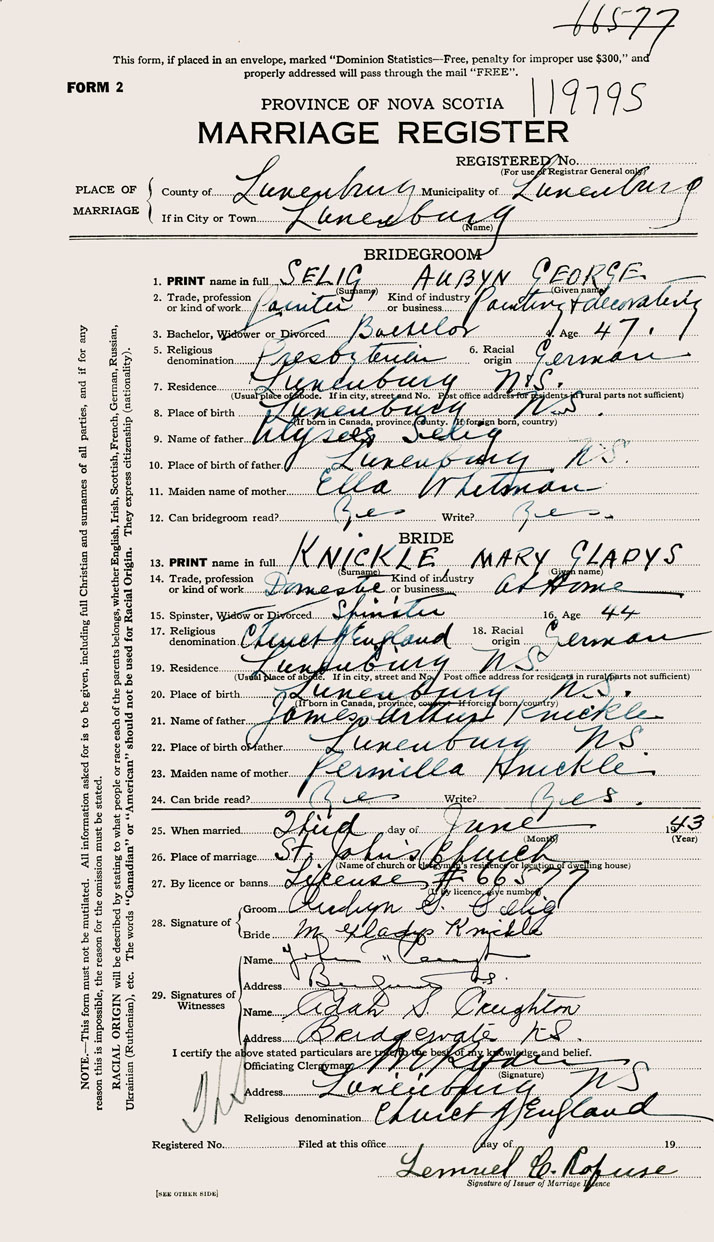 66577
This form, if placed in an envelope, marked "Dominion Statistics—Free, penalty for improper use $300," and
properly addressed will pass through the mail "FREE".
FORM 2
119795
PROVINCE OF NOVA SCOTIA
MARRIAGE REGISTER
REGISTERED No.
(For use of Registrar General only)
PLACE OF MARRIAGE
County of Lunenburg Municipality of Lunenburg
If in City or Town Lunenburg
(Name)
BRIDEGROOM
1. PRINT name in full SELIG AUBYN GEORGE
(Surname) (Given name)
2. Trade, profession or kind of work Painter Kind of industry or business Painting & decorating
3. Bachelor, Widower or Divorced Bachelor 4. Age 47.
5. Religious denomination Presbyterian 6. Racial origin German
7. Residence Lunenburg N.S.
(Usual place of abode. If in city, street and No. Post office address for residents in rural parts not sufficient)
8. Place of birth Lunenburg N.S.
(If born in Canada, province, county. If foreign born, country)
9. Name of father Ulysses Selig
10. Place of birth of father Lunenburg N.S.
11. Maiden name of mother Ella Whitman
12. Can bridegroom read? Yes Write? Yes.
BRIDE
13. PRINT name in full KNICKLE MARY GLADYS
(Surname) (Given name)
14. Trade, profession or kind of work Domestic Kind of industry or business at Home
15. Spinster, Widow or Divorced Spinster 16. Age 44
17. Religious denomination Church of England 18. Racial origin German
19. Residence Lunenburg N.S.
(Usual place of abode. If in city, street and No. Post office address for residents in rural parts not sufficient)
20. Place of birth Lunenburg N.S.
(If born in Canada, province, county. If foreign born, country)
21. Name of father James Arthur Knickle
22. Place of birth of father Lunenburg NS.
23. Maiden name of mother Permilla Knickle
24. Can bride read? Yes Write? Yes.
25. When married Third day of June 1943
(Month) (Year)
26. Place of marriage St. John's Church
(Name of church or clergyman's residence or location of dwelling house)
27. By licence or banns License # 66577
(If by licence, give number)
28. Signature of
Groom Aubyn G. Selig
Bride M Gladys Knickle
29. Signatures of Witnesses
Name John
Address
Name Adah S. Creighton
Address Bridgewater N.S.
I certify the above stated particulars are true to the best of my knowledge and belief.
Officiating Clergyman
(Signature)
Address Lunenburg NS
Religious denomination Church of England
Registered No. Filed at this office day of 19
Lemuel C. Rofuse
Signature of Issuer of Marriage Licence
[SEE OTHER SIDE]
NOTE.—This form must not be mutilated. All information asked for is to be given, including full Christian and surnames of all parties, and if for any
reason this is impossible, the reason for the omission must be stated.
RACIAL ORIGIN will be described by stating to what people or race each of the parents belongs, whether English, Irish, Scottish, French, German, Russian,
Ukrainian (Ruthenian), etc. The words "Canadian" or "American" should not be used for Racial Origin. They express citizenship (nationality).